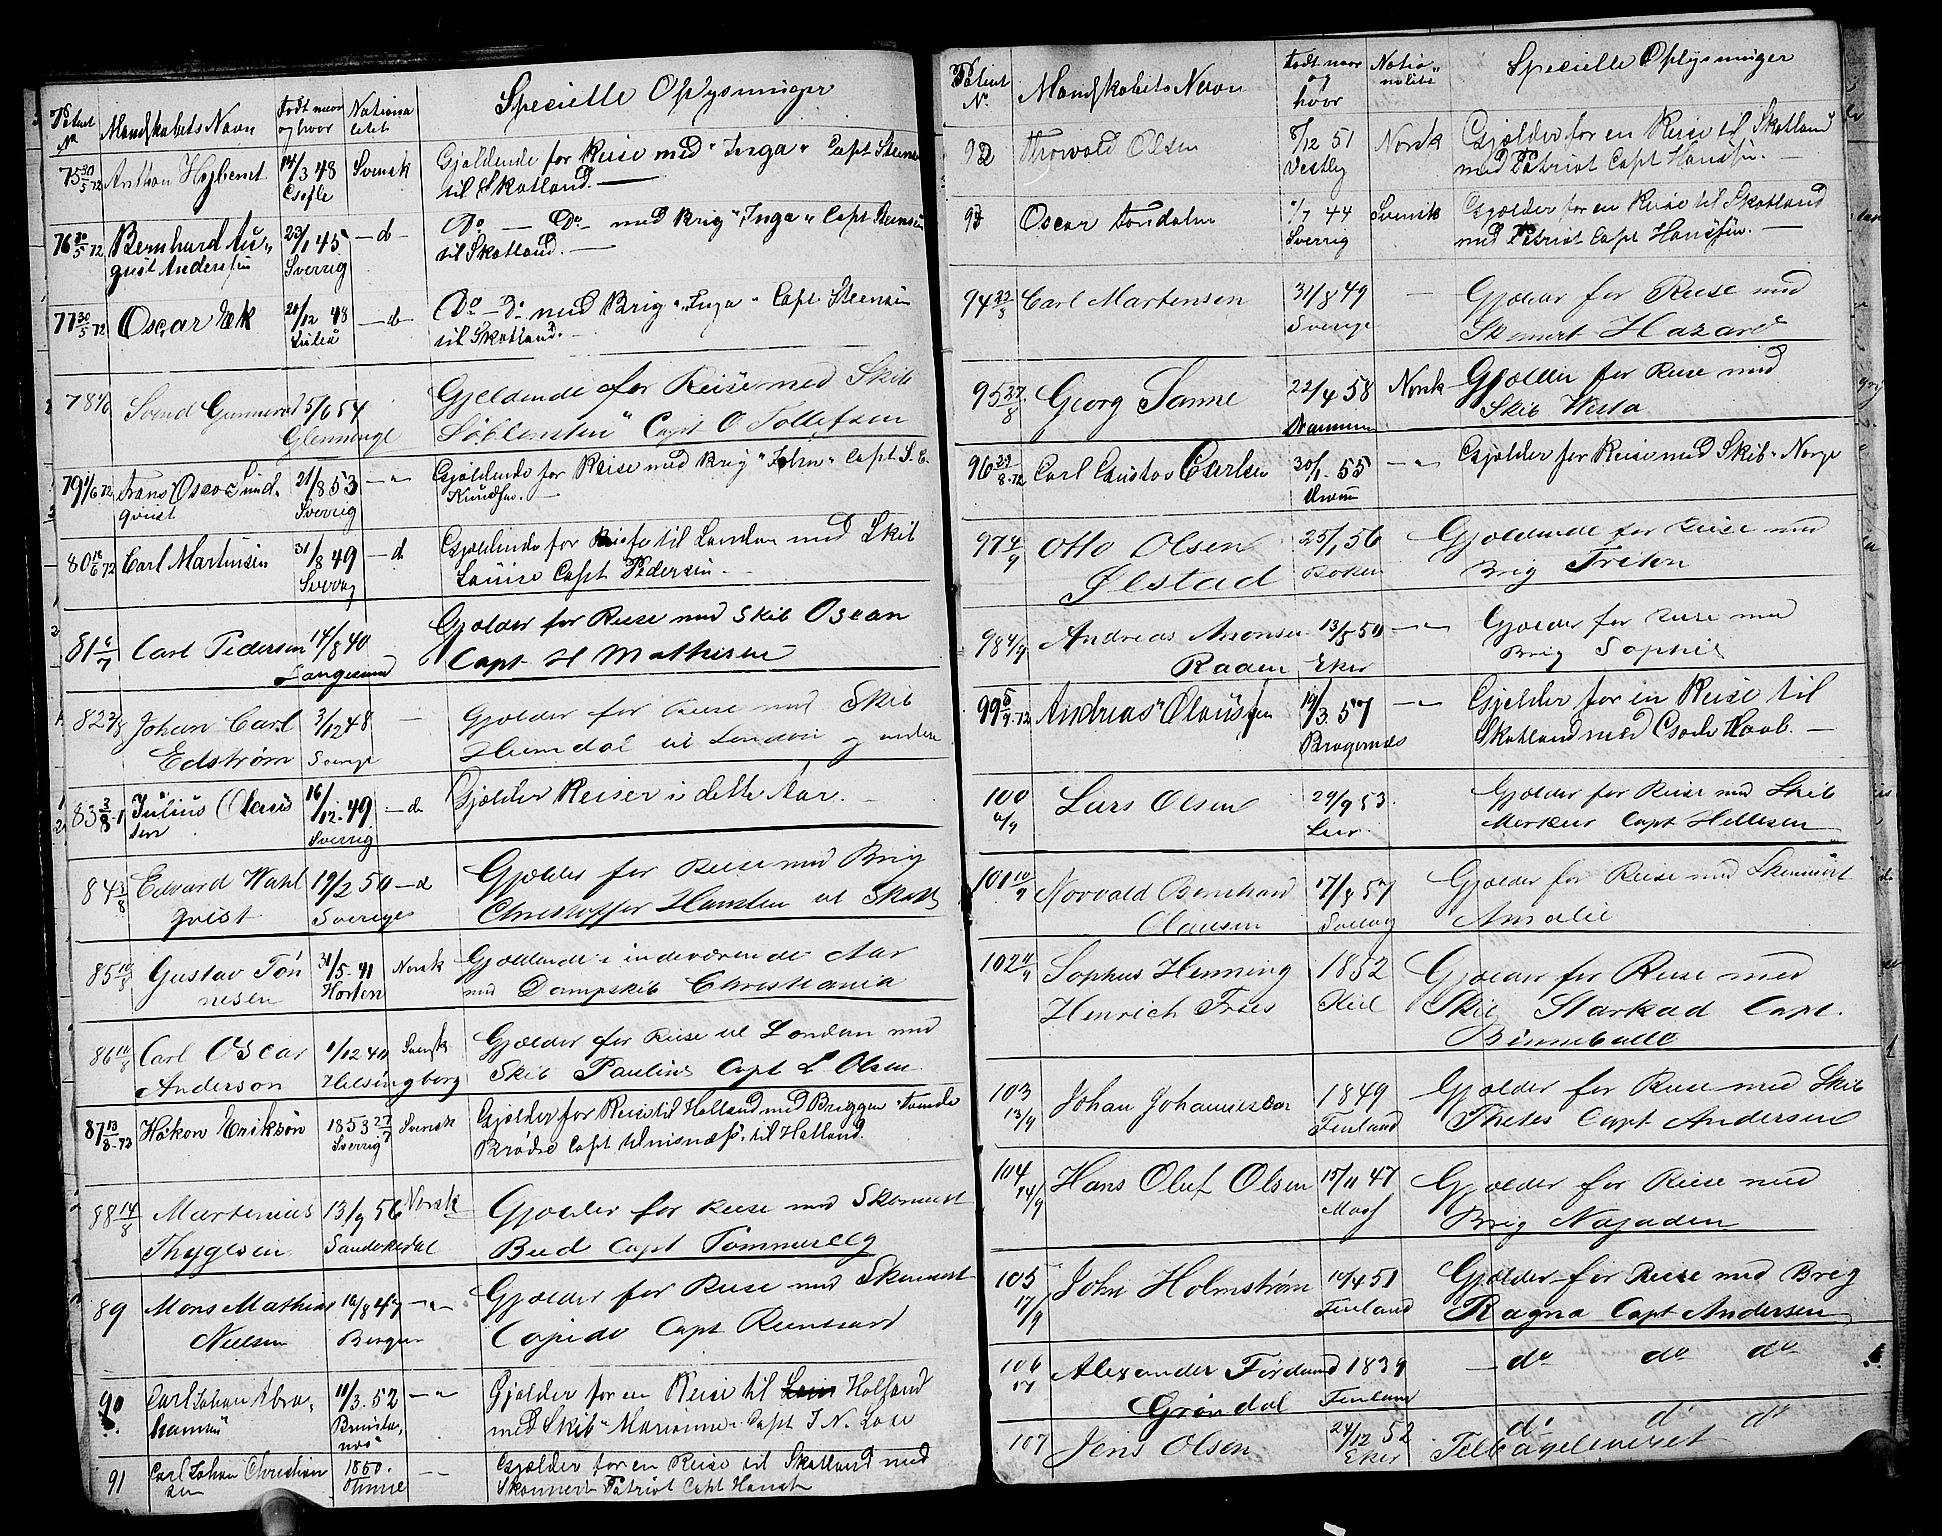 Patent No Mandskabets Navn Født naar og hvor Nationalitet Specielle Oplysninger
75 30/5 72 Anthon Hegbernt 14/3 48 Svensk Gjældende for Reise med "Inga" Capt Steensen
Gefle til Skotland.
76 30/5 72 Bernhard Au- 23/1 45 — d — Do — Do — med Brig "Inga" Capt Steensen
gust Andersen Sverrig til Skotland.
77 30/5 72 Oscar Ek 20/12 48 — d — Do — Do med Brig "Inga" Capt Steensen
Luleå til Skotland.
78 1/6 Svend Gunnerød 5/6 54 Gjeldende for Reise med Skib
Glemminge Capt O Tollefsen
79 1/6 72 Frans Oscar Lind- 21/8 53 — " Gjældende for Reise med Brig "John" Capt S. E.
qvist Sverrig Knudsen.
80 16/6 72 Carl Martinsen 31/8 49 — d Gjældende for Reise til London med Skib
Sverrig Louise Capt Pedersen.
81 6/7 Carl Pedersen 14/8 40 Gjælder for Reise med Skib Osean
Langesund Capt H Mathisen
82 3/8 Johan Carl 3/12 48 — Gjælder for Reise med Skib
Edstrøm Sverige Heimdal til London og
83 3/8 Julius Olaus 16/12 49 — d Gjælder Reiser i dette Aar —
sen Sverrig
84 3/8 Edvard Wahl 19/2 50 — d Gjælder for Reise med Brig
qvist Sveriges Christoffer Hansten til Skotl
85 10/8 Gustav Tøn 31/5 41 Norsk Gjældende i indeværende Aar
nesen Horten med Dampskib Christiania
86 10/8 Carl Oscar 1/12 40 Svensk Gjælder for Reise til London med
Anderson Helsingborg Skib Pauline Capt L Olsen
87 13/8 72 Håkon Erikson 1853 27/7 Svensk Gjælder for Reise til Holland med Briggen
Sverrig Brødre Capt til Holland.
88 14/8 Martenius 13/9 56 Norsk Gjælder for Reise med Skonnert
Thygesen Sandekedal Bud Capt Tømmereeg
89 Mons Mathias 16/8 47 — " — Gjælder for Reise med Skonnert
Nielsen Bergen Cupido Capt
90 Carl Johan Abra- 11/3 52 — " Gjælder for en Reise til Holland
hamsen med Skib "Marianne" Capt J. N.
91 Carl Johan Christian 1850. — Gjælder for en Reise til Skotland med
sen Skonnert Patriot Capt Hansen
Patent N. Mandskabets Navn Født naar og hvor Nationalitet Specielle Oplysninger
92 Thorvald Olsen 8/12 51 Norsk Gjælder for en Reise til Skotland
Vestby med Patriot Capt Hansen. —
93 Oscar Tordalm 1/7 44 Svensk Gjælder for en Reise til Skotland
Sverrig med Patriot Capt Hansen. —
94 22/8 Carl Martensen 31/8 49 — Gjælder for Reise med
Sverige Skonnert Hazard
95 27/8 Georg Sanne 22/4 58 Norsk Gjælder for Reise med
Drammen Skib Vesta
96 29/8 72 Carl Gustav Carlsen 30/1 55 — " Gjælder for Reise med Skib "Norge
Dram
97 4/9 Otto Olsen 25/1 56 Gjældende for Reise med
Ølstad Brig Triton
98 4/9 Andreas Aronsen 13/5 50 — " — Gjælder for Reise med
Raaen Eker Brig Sophie
99 5/9 72 Andreas Olaussen 19/3 57 — " — Gjelder for en Reise til
Bragernæs Skotland med Gode Haab. —
100 6/9 Lars Olsen 29/9 53. Gjælder for Reise med Skib
Lier. Merkur Capt Hellesen
101 10/9 Norvald Bernhard 17/8 57 Gjælder for Reise med Skonnert
Clausen Svelvig Amalie
102 11/9 Sophus Henning 1852 Gjælder for Reise med
Henrich Fries Kiel Skib Starkad Capt.
Binneballe
103 13/9 Johan Johannessen 1849 Gjælder for Reise med Skib
Finland Thetes Capt Andersen
104 14/9 Hans Oluf Olsen 15/11 47 Gjælder for Reise med
Moss Brig Najaden
105 17/9 John Holmstrøm 10/4 51 Gjælder for Reise med Brig
Finland Ragna Capt Andersen
106 17 Alexander Ferdinand 1839 — do do do
Grøndal Finland
107 Jens Olsen 24/12 52 do do do
Eker Tilbageleveret